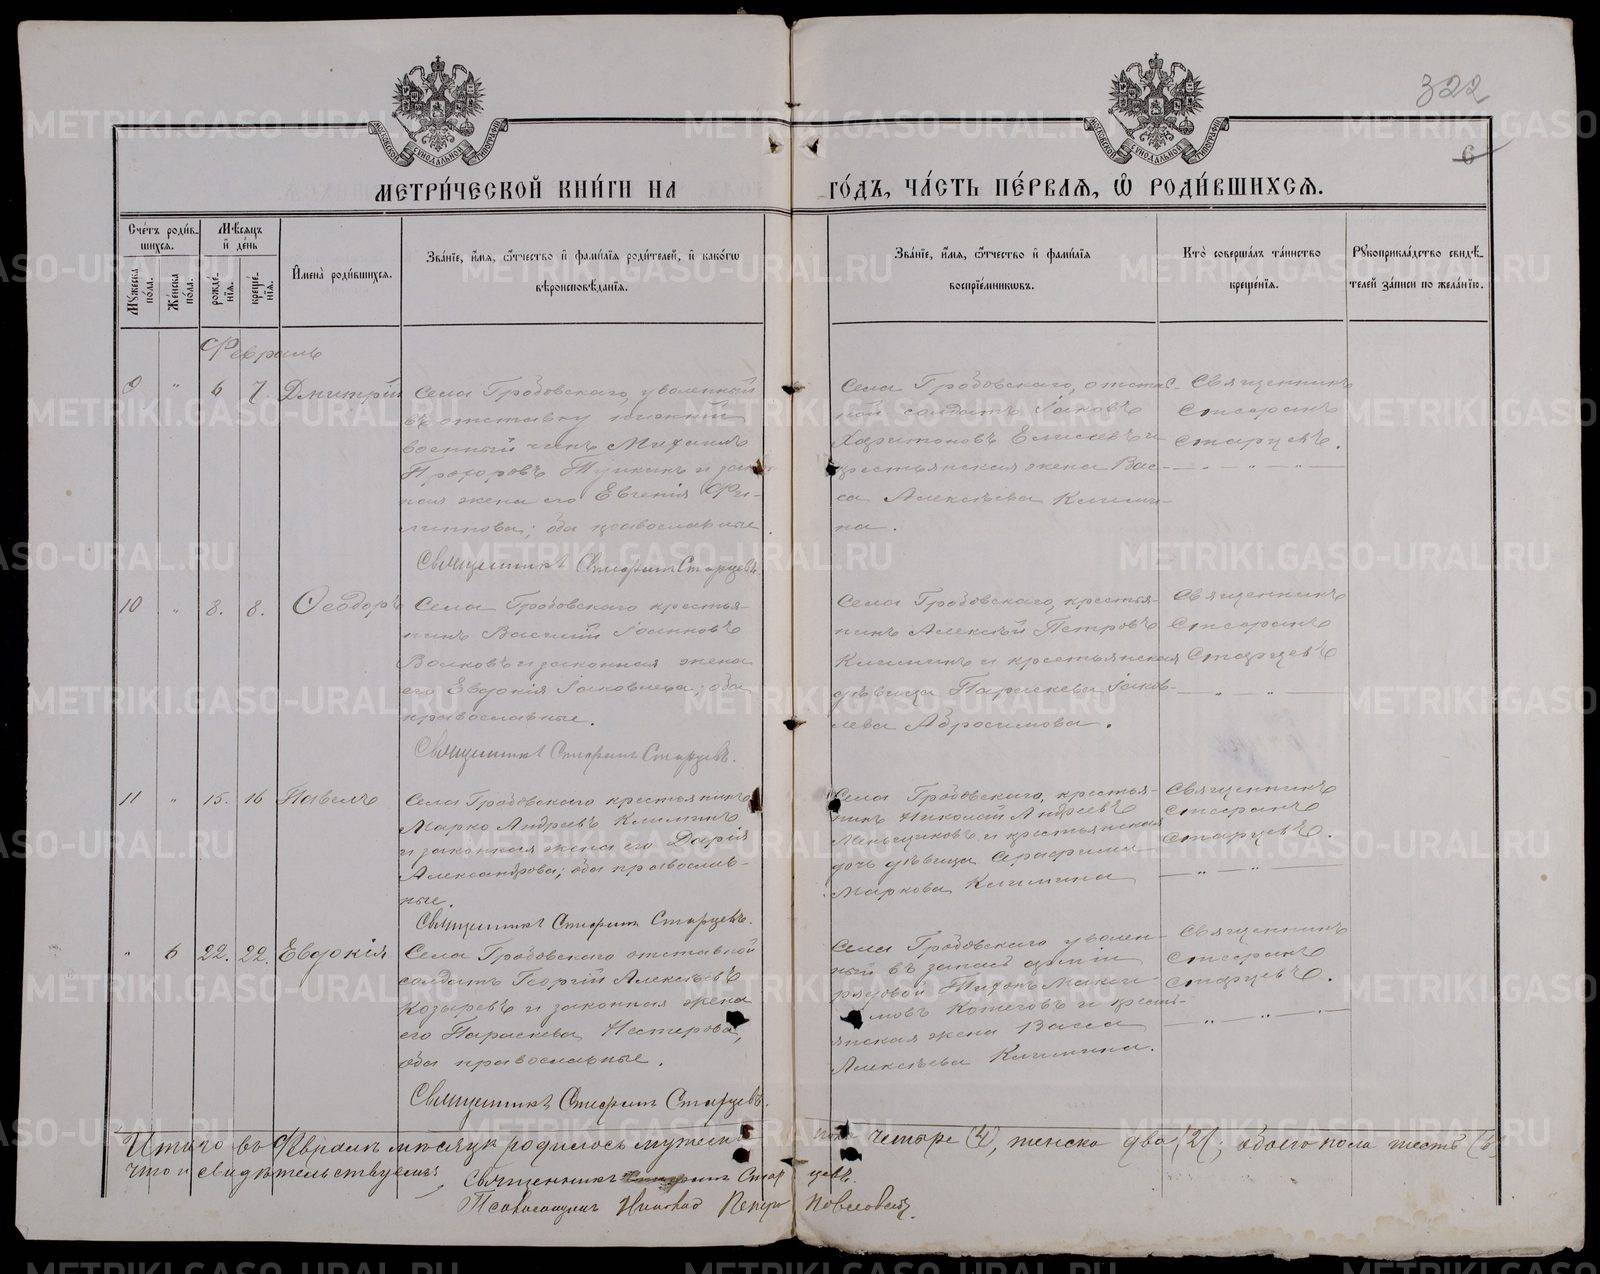 322
6
МОСКОВСКОЙ СѴНОДАЛЬНОЙ ТИПОГРАФІИ
МОСКОВСКОЙ СѴНОДАЛЬНОЙ ТИПОГРАФІИ
МЕТРИ́ЧЕСКОЙ КНИ́ГИ НА
ГО́ДЪ, ЧА́СТЬ ПЕ́РВАѦ, Ѡ҆ РОДИ́ВШИХСѦ.
Сче́тъ роди́в-
шихсѧ.
Мꙋ́жеска по́ла.
Же́нска по́ла.
Мѣ́сѧцъ
и҆ де́нь
рожде́-
нїѧ.
креще́-
нїѧ.
И҆мена̀ роди́вшихсѧ.
Зва́нїе, и҆́мѧ, ѻ҆́тчество и҆ фами́лїѧ роди́телей, и҆ како́гѡ
вѣроисповѣ́данїѧ.
Зва́нїе, и҆́мѧ, ѻ҆́тчество и҆ фами́лїѧ
воспрїе́мникѡвъ.
Кто̀ соверша́лъ та́инство
креще́нїѧ.
Рꙋкоприкла́дство свидѣ́-
телей за́писи по жела́нїю.
Февраль
9 " 6 7. Дмитрій
Села Гробовскаго, уволенный
въ отставку нижній
военный чинъ Михаилъ
Прохоровъ и закон-
ная жена его Евгенія Фи-
липпова; оба православные.
Священникъ Стефанъ Старцевъ
Села Гробовскаго, отстав-
ной солдатъ Іаковъ
Харитоновъ Елисеевъ и
крестьянская жена Вас-
са Алексѣева Клими-
на.
Священникъ
Стефанъ
Старцевъ.
10 " 8. 8. Ѳеодоръ
Села Гробовскаго крестья-
нинъ Василій Іоанновъ
Волковъ и законная жена
его Евдокія Іаковлева; оба
православные.
Священникъ Стефанъ Старцевъ.
Села Гробовскаго, крестья-
нинъ Алексѣй Петровъ
Климинъ и крестьянская
дѣвица Параскева Іаков-
лева Абросимова.
Священникъ
Стефанъ
Старцевъ
11 " 15. 16 Павелъ
Села Гробовскаго крестьянинъ
Марко Андреевъ Климинъ
и законная жена его Дарія
Александрова; оба православ-
ные.
Священникъ Стефанъ Старцевъ.
Села Гробовскаго, крестья-
нинъ Николай Андреевъ
Меньщиковъ и крестьянская
дочь дѣвица Серафима
Маркова Климина
Священникъ
Стефанъ
Старцевъ.
" 6 22. 22. Евдокія
Села Гробовскаго отставной
солдатъ Георгій Алексѣевъ
Козыревъ и законная жена
его Параскева Нестерова,
оба православные.
Священникъ Стефанъ Старцевъ.
Села Гробовскаго уволен-
ный въ запасъ арміи
рядовой Тихонъ Макси-
мовъ Кочеговъ и кресть-
янская жена Васса
Алексѣева Климина.
Священникъ
Стефанъ
Старцевъ.
Итого въ Февралѣ мѣсяцѣ родилось мужска пола четыре (4), женска два (2); обоего пола шесть (6)
что и свидѣтельствуемъ:
Священникъ Стефанъ Старцевъ.
Псаломщикъ Николай
METRIKI.GASO-URAL.RU